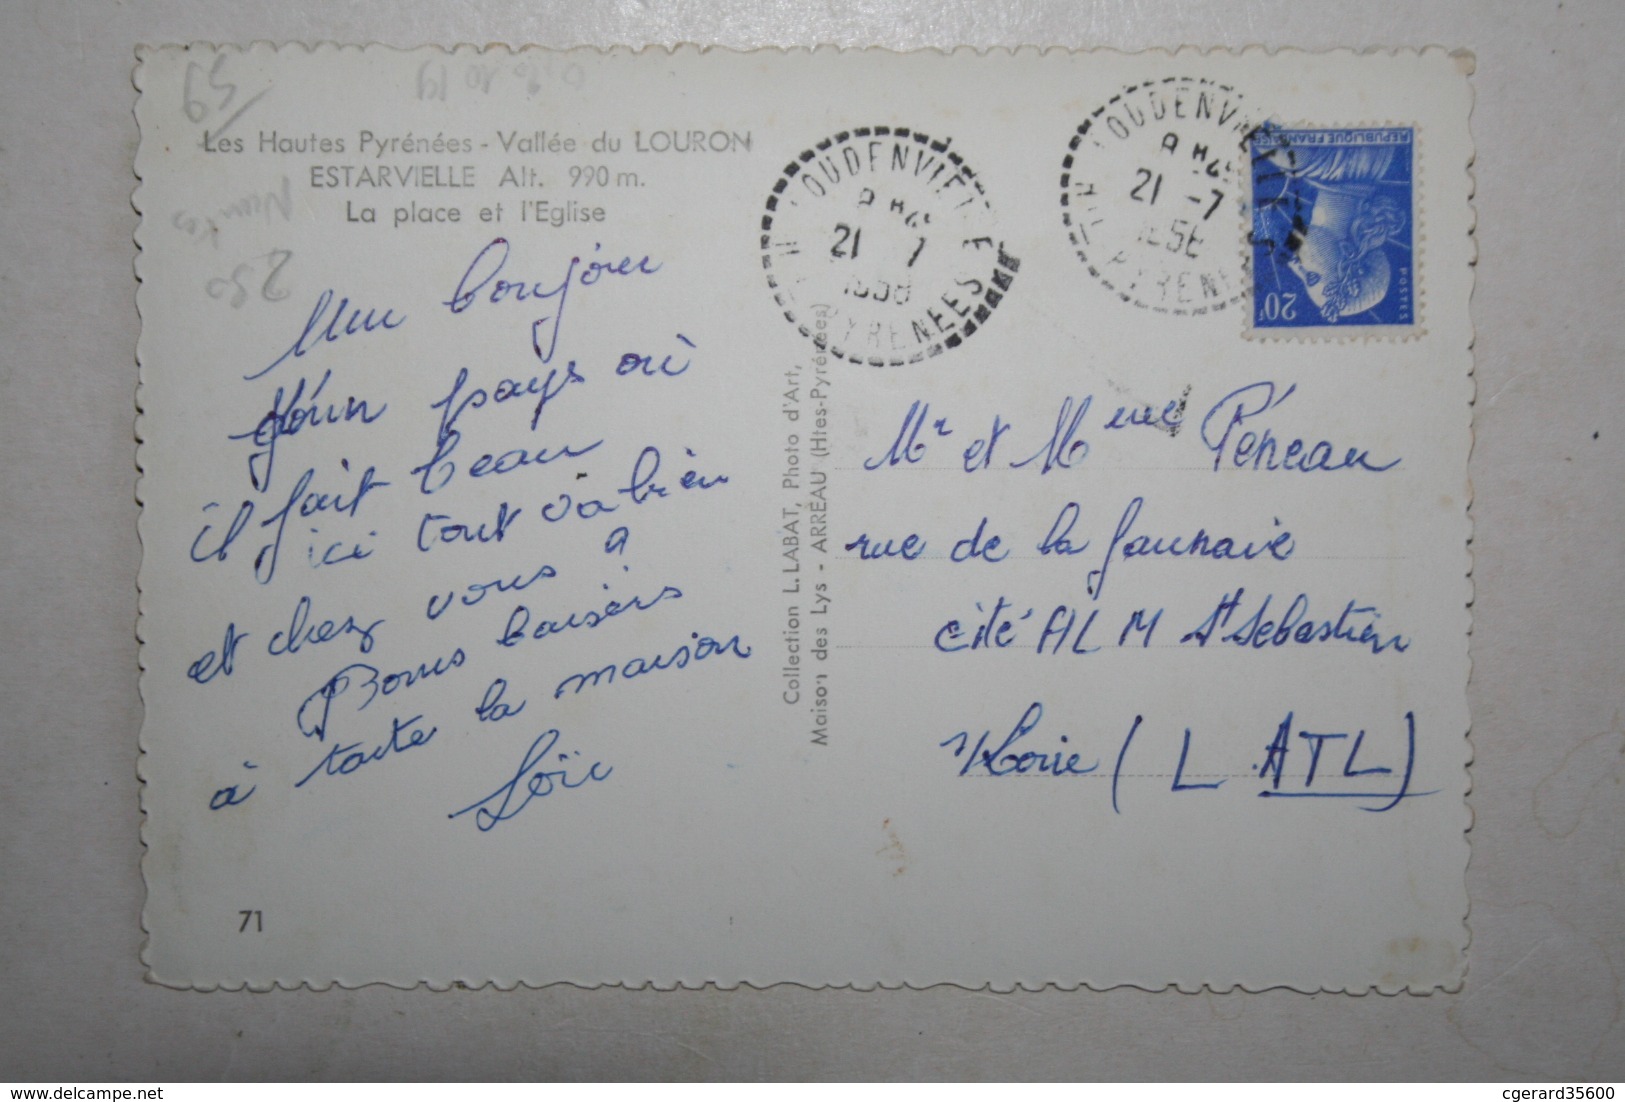 Les Hautes Pyrénées - Vallée du LOURON
ESTARVIELLE Alt. 990 m.
La place et l'Eglise
Un bonjour
d'un pays où
il fait beau
ici tout va bien
et chez vous a
Bons baisers
à toute la maison
Loïc
71
Collection L. LABAT, Photo d'Art,
Maison des Lys - ARREAU (Htes-Pyrénées)
LOUDENVIELLE
21 7
1958
PYRENEES
LOUDENVIELLE
21 -7
1958
PYRENEES
REPUBLIQUE FRANCAISE
POSTES
20F
Mr et Mme Péneau
rue de la Jaunaie
cité ALM St Sebastien
s/Loire (L. ATL)
59
250
delcampe.net
cgerard35600